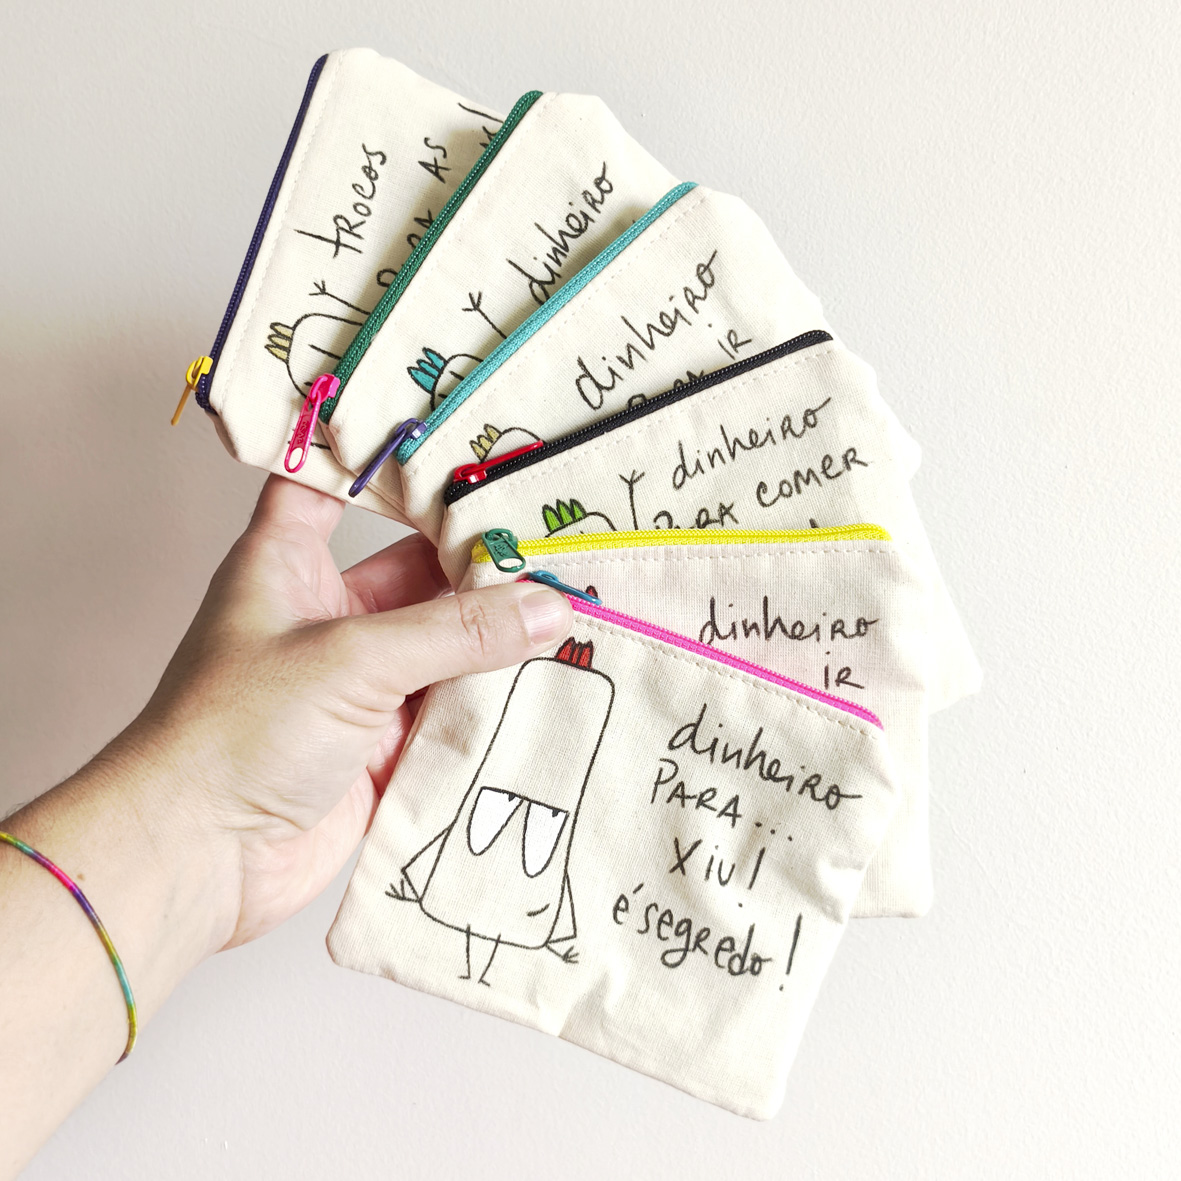 trocos
PARA AS
dinheiro
dinheiro
PARA IR
dinheiro
PARA COMER
dinheiro
IR
dinheiro
PARA...
Xiu!
é segredo!